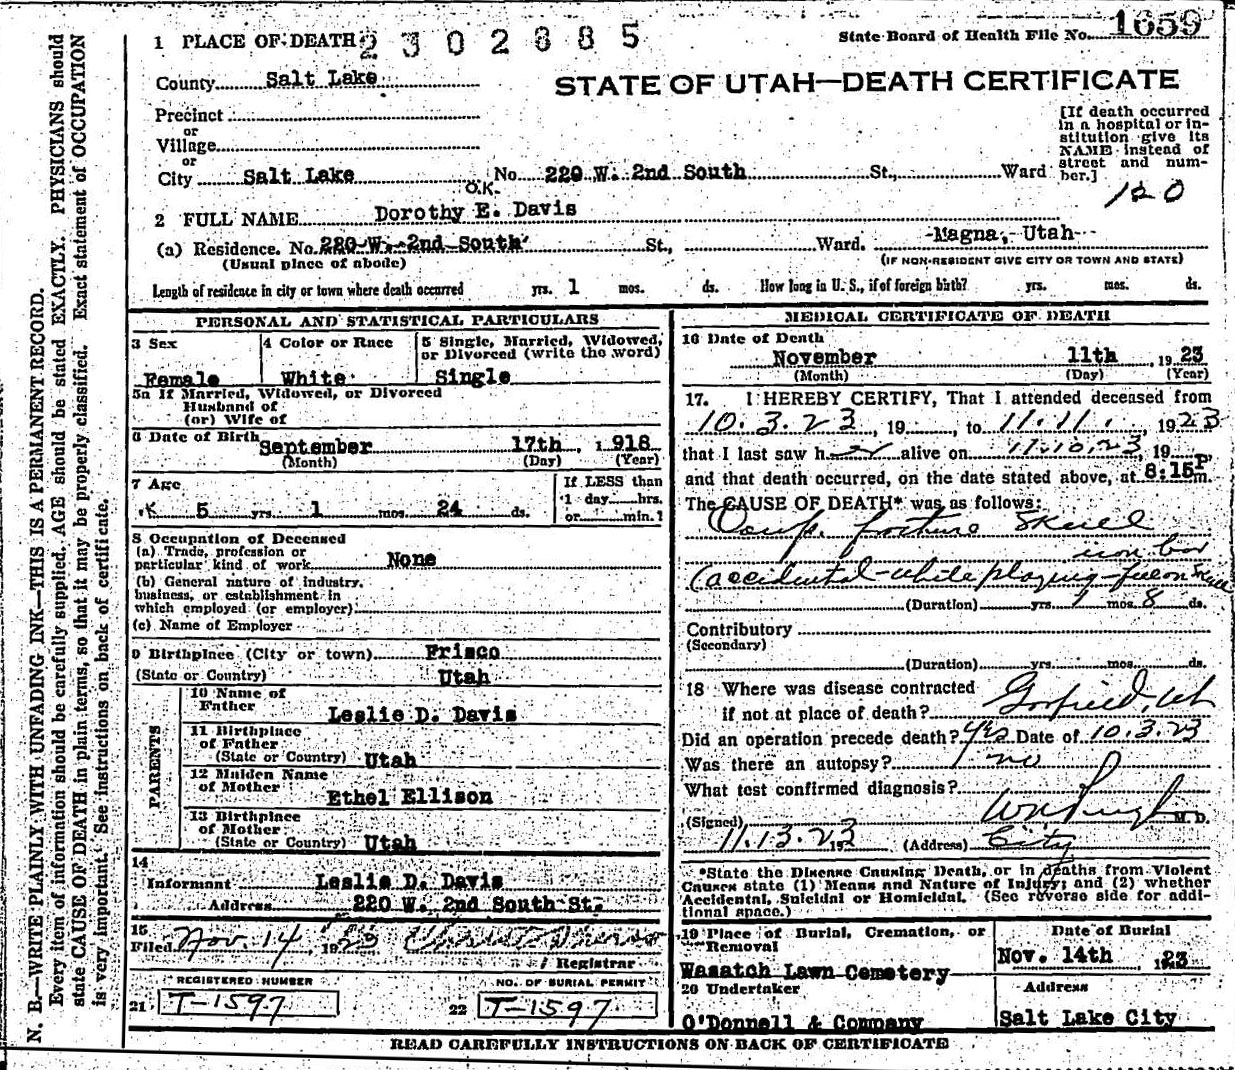 1 PLACE OF DEATH 2302885
State Board of Health File No. 1659
County Salt Lake
STATE OF UTAH—DEATH CERTIFICATE
Precinct
or
Village
or
City Salt Lake No. 220 W. 2nd South St., Ward
[If death occurred in a hospital or institution give its NAME instead of street and number.]
120
O.K.
2 FULL NAME Dorothy E. Davis
(a) Residence. No. 220 W. 2nd South St., Ward. Magna, Utah
(Usual place of abode) (IF NON-RESIDENT GIVE CITY OR TOWN AND STATE)
Length of residence in city or town where death occurred yrs. 1 mos. ds. How long in U. S., if of foreign birth? yrs. mos. ds.
PERSONAL AND STATISTICAL PARTICULARS
3 Sex
Female
4 Color or Race
White
5 Single, Married, Widowed, or Divorced (write the word)
Single
5a If Married, Widowed, or Divorced
Husband of
(or) Wife of
6 Date of Birth September 17th, 1918
(Month) (Day) (Year)
7 Age
5 yrs. 1 mos. 24 ds.
If LESS than
1 day hrs.
or min.
8 Occupation of Deceased
(a) Trade, profession or
particular kind of work None
(b) General nature of industry,
business, or establishment in
which employed (or employer)
(c) Name of Employer
9 Birthplace (City or town) Frisco
(State or Country) Utah
PARENTS
10 Name of
Father Leslie D. Davis
11 Birthplace
of Father
(State or Country) Utah
12 Maiden Name
of Mother Ethel Ellison
13 Birthplace
of Mother
(State or Country) Utah
14
Informant Leslie D. Davis
Address 220 W. 2nd South St.
15
Filed Nov. 14 1923
Registrar
REGISTERED NUMBER
21 T-1597
NO. OF BURIAL PERMIT
22 T-1597
MEDICAL CERTIFICATE OF DEATH
16 Date of Death
November 11th 1923
(Month) (Day) (Year)
17. I HEREBY CERTIFY, That I attended deceased from
10.3.23, 19 to 11.11. 1923
that I last saw h er alive on 11.10.23, 19
and that death occurred, on the date stated above, at 8:15 P m.
The CAUSE OF DEATH* was as follows:
Comp. fracture Skull
iron bar
(accidental-while playing-fell on Skull
(Duration) yrs. 1 mos. 8 ds.
Contributory
(Secondary)
(Duration) yrs. mos. ds.
18 Where was disease contracted
if not at place of death? Garfield, Ut
Did an operation precede death? yes Date of 10.3.23
Was there an autopsy? no
What test confirmed diagnosis?
(Signed) M. D.
11.13.23, 192 (Address) City
*State the Disease Causing Death, or in deaths from Violent
Causes state (1) Means and Nature of Injury; and (2) whether
Accidental, Suicidal or Homicidal. (See reverse side for additional space.)
19 Place of Burial, Cremation, or Removal
Wasatch Lawn Cemetery
Date of Burial
Nov. 14th 1923
20 Undertaker
O'Donnell & Company
Address
Salt Lake City
READ CAREFULLY INSTRUCTIONS ON BACK OF CERTIFICATE
N. B.—WRITE PLAINLY WITH UNFADING INK—THIS IS A PERMANENT RECORD.
Every item of information should be carefully supplied. AGE should be stated EXACTLY. PHYSICIANS should
state CAUSE OF DEATH in plain terms, so that it may be properly classified. Exact statement of OCCUPATION
is very important. See instructions on back of certificate.